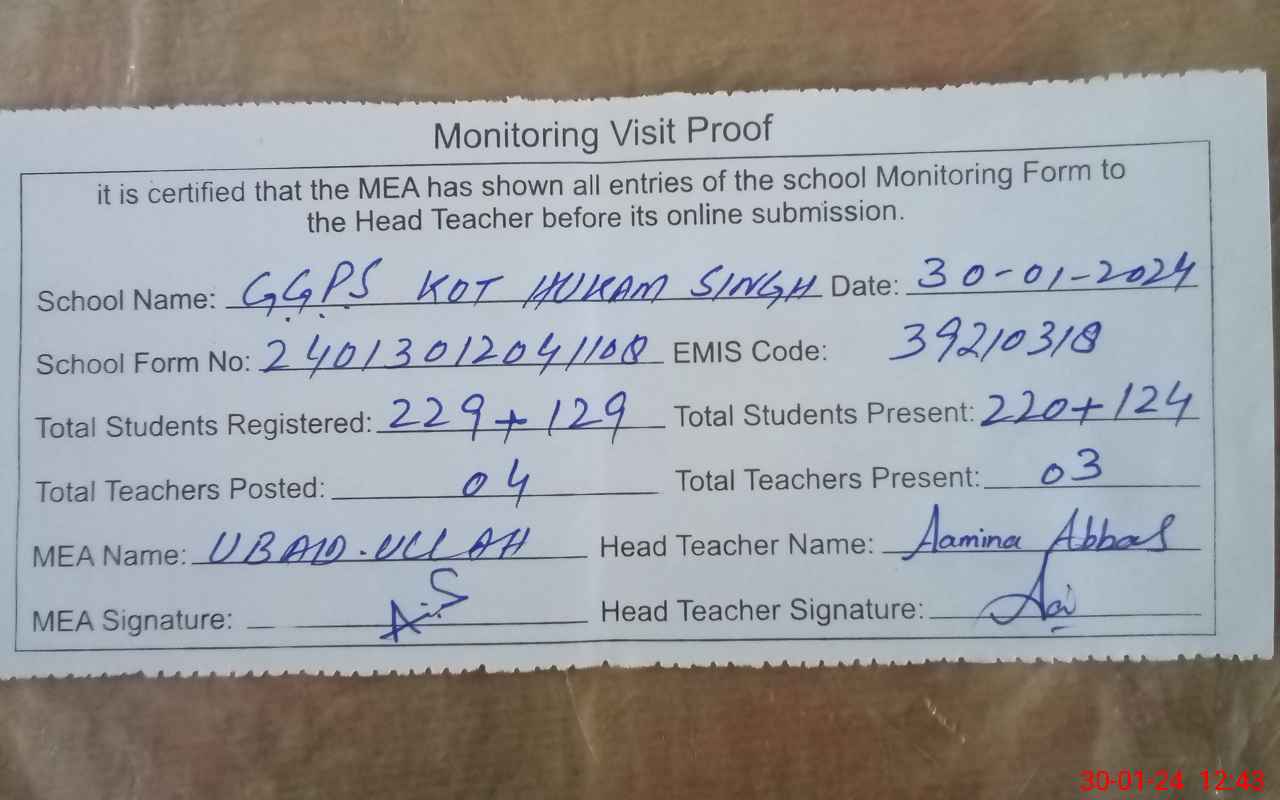 Monitoring Visit Proof
it is certified that the MEA has shown all entries of the school Monitoring Form to
the Head Teacher before its online submission.
School Name: GGPS KOT HUKAM SINGH Date: 30-01-2024
School Form No: 24013012041108 EMIS Code: 39210318
Total Students Registered: 229+129 Total Students Present: 220+124
Total Teachers Posted: 04 Total Teachers Present: 03
MEA Name: UBAID.ULLAH Head Teacher Name: Aamina Abbas
MEA Signature: Head Teacher Signature:
30-01-24 12:43